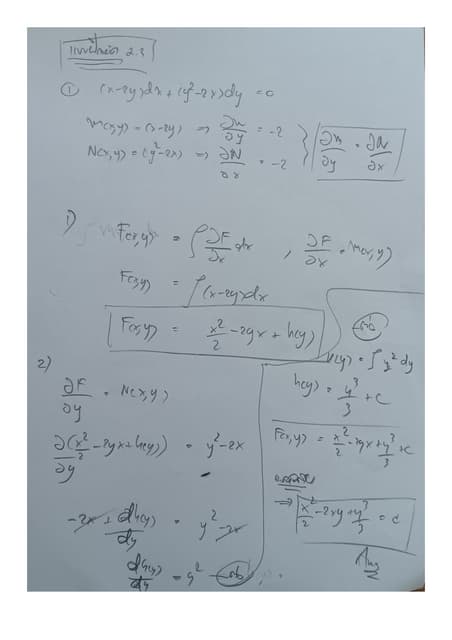 แบบฝึกหัด 2.3
① (x-2y)dx + (y²-2x)dy = 0
M(x,y) = (x-2y) ⇒ ∂M/∂y = -2
N(x,y) = (y²-2x) ⇒ ∂N/∂x = -2
∂M/∂y = ∂N/∂x
1)
F(x,y) = ∫ ∂F/∂x dx , ∂F/∂x = M(x,y)
F(x,y) = ∫(x-2y)dx
F(x,y) = x²/2 - 2yx + h(y)
2)
∂F/∂y = N(x,y)
∂(x²/2 - 2yx + h(y))/∂y = y² - 2x
-2x + dh(y)/dy = y² - 2x
dh(y)/dy = y²
h(y) = ∫ y² dy
h(y) = y³/3 + c
F(x,y) = x²/2 - 2yx + y³/3 + c
⇒ x²/2 - 2xy + y³/3 = c
Ans